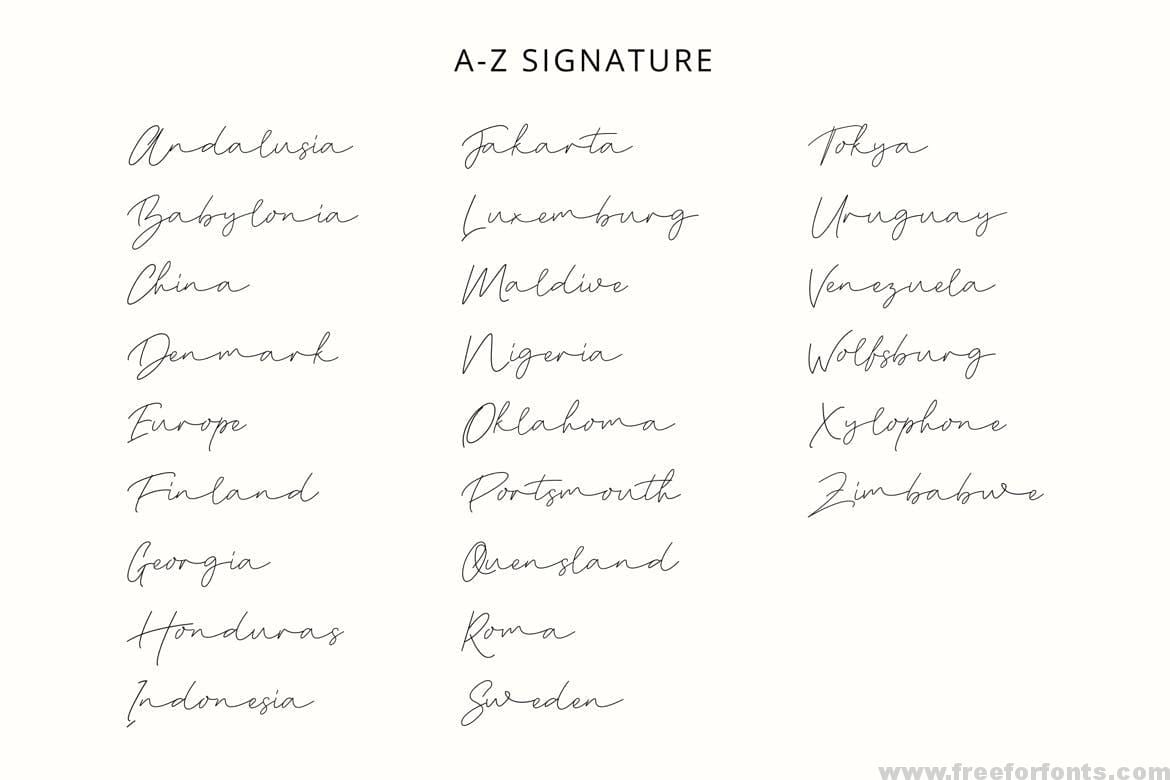 A-Z SIGNATURE
Andalusia
Babylonia
China
Denmark
Europe
Finland
Georgia
Honduras
Indonesia
Jakarta
Luxemburg
Maldive
Nigeria
Oklahoma
Portsmouth
Quensland
Roma
Sweden
Tokya
Uruguay
Venezuela
Wolfsburg
Xylophone
Zimbabwe
www.freeforfonts.com